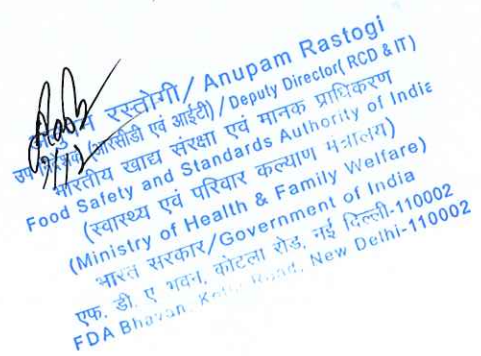 रस्तोगी/ Anupam Rastogi
(आरसीडी एवं आईटी) / Deputy Director( RCD & IT)
भारतीय खाद्य संरक्षा एवं मानक प्राधिकरण
Food Safety and Standards Authority of India
(स्वास्थ्य एवं परिवार कल्याण मंत्रालय)
(Ministry of Health & Family Welfare)
भारत सरकार/Government of India
एफ. डी. ए भवन, कोटला रोड, नई दिल्ली-110002
FDA Bhavan, Road, New Delhi-110002